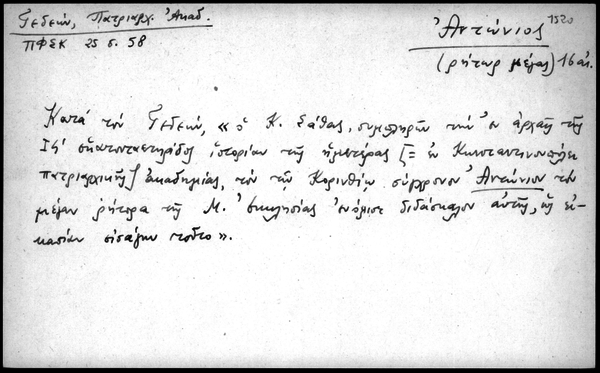 Γεδεών, Πατριαρχ. Ἀκαδ.
ΠΦΣΚ 25 σ. 58
Ἀντώνιος 1520
(ῥήτωρ μέγας) 16 αἰ.
Κατὰ τὸν Γεδεών, «ὁ Κ. Σάθας, συμπληρῶν τὴν ἐν ἀρχῇ τῆς
Ις' ἑκατονταετηρίδος ἱστορίαν τῆς ἡμετέρας [= ἐν Κωνσταντινουπόλει
πατριαρχικῆς] ἀκαδημίας, τὸν τῷ Κορινθίῳ σύγχρονον Ἀντώνιον τὸν
μέγαν ῥήτορα τῆς Μ. Ἐκκλησίας ἐνόμισε διδάσκαλον αὐτῆς, ὡς εἰ-
κασίαν εἰσάγων τοῦτο».